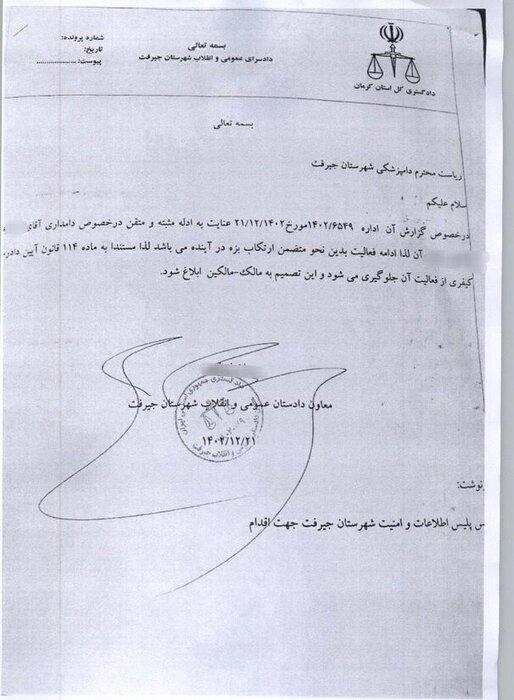 بسمه تعالی
دادسرای عمومی و انقلاب شهرستان جیرفت
شماره پرونده:
تاریخ:
پیوست: ....................
دادگستری کل استان کرمان
بسمه تعالی
ریاست محترم دامپزشکی شهرستان جیرفت
سلام علیکم
درخصوص گزارش آن اداره ۱۴۰۲/۶۵۴۹مورخ۲۱/۱۲/۱۴۰۲ عنایت به ادله مثبته و متقن درخصوص دامداری آقای
آن لذا ادامه فعالیت بدین نحو متضمن ارتکاب بزه در آینده می باشد لذا مستندا به ماده ۱۱۴ قانون آیین دادر
کیفری از فعالیت آن جلوگیری می شود و این تصمیم به مالک-مالکین ابلاغ شود.
معاون دادستان عمومی و انقلاب شهرستان جیرفت
۱۴۰۲/۱۲/۲۱
نوشت:
پلیس اطلاعات و امنیت شهرستان جیرفت جهت اقدام